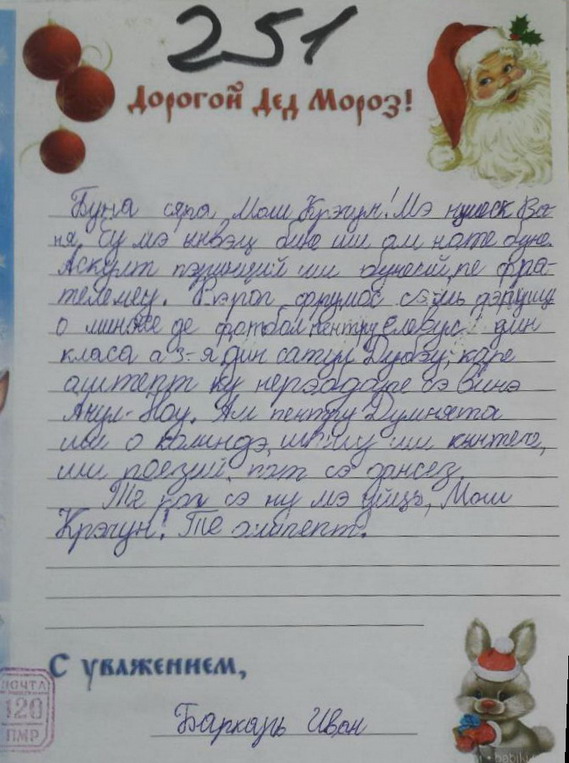 251
Дорогой Дед Мороз!
Буна сяра Мош Крэчун! Мэ нумеск Ва-
ня. Еу мэ ынвэц бине ши ам ноте буне.
Аскулт пэринций ши бунеий, пе фра-
теле меу. Те рог фрумос сэ-мь дэруешь
о минӂе де фотбал пентру елевул дин
класа а 3-я дин сатул Дубэу, каре
аштепт ку нерэбдаре сэ винэ
Анул-Ноу. Ам пентру Думнята
ши о колиндэ, ши ши кынтече,
ши поезий, пот сэ дансез.
Те рог сэ ну мэ уйць, Мош
Крэчун! Те аштепт.
С уважением,
Баркарь Иван
ПОЧТА
120
ПМР